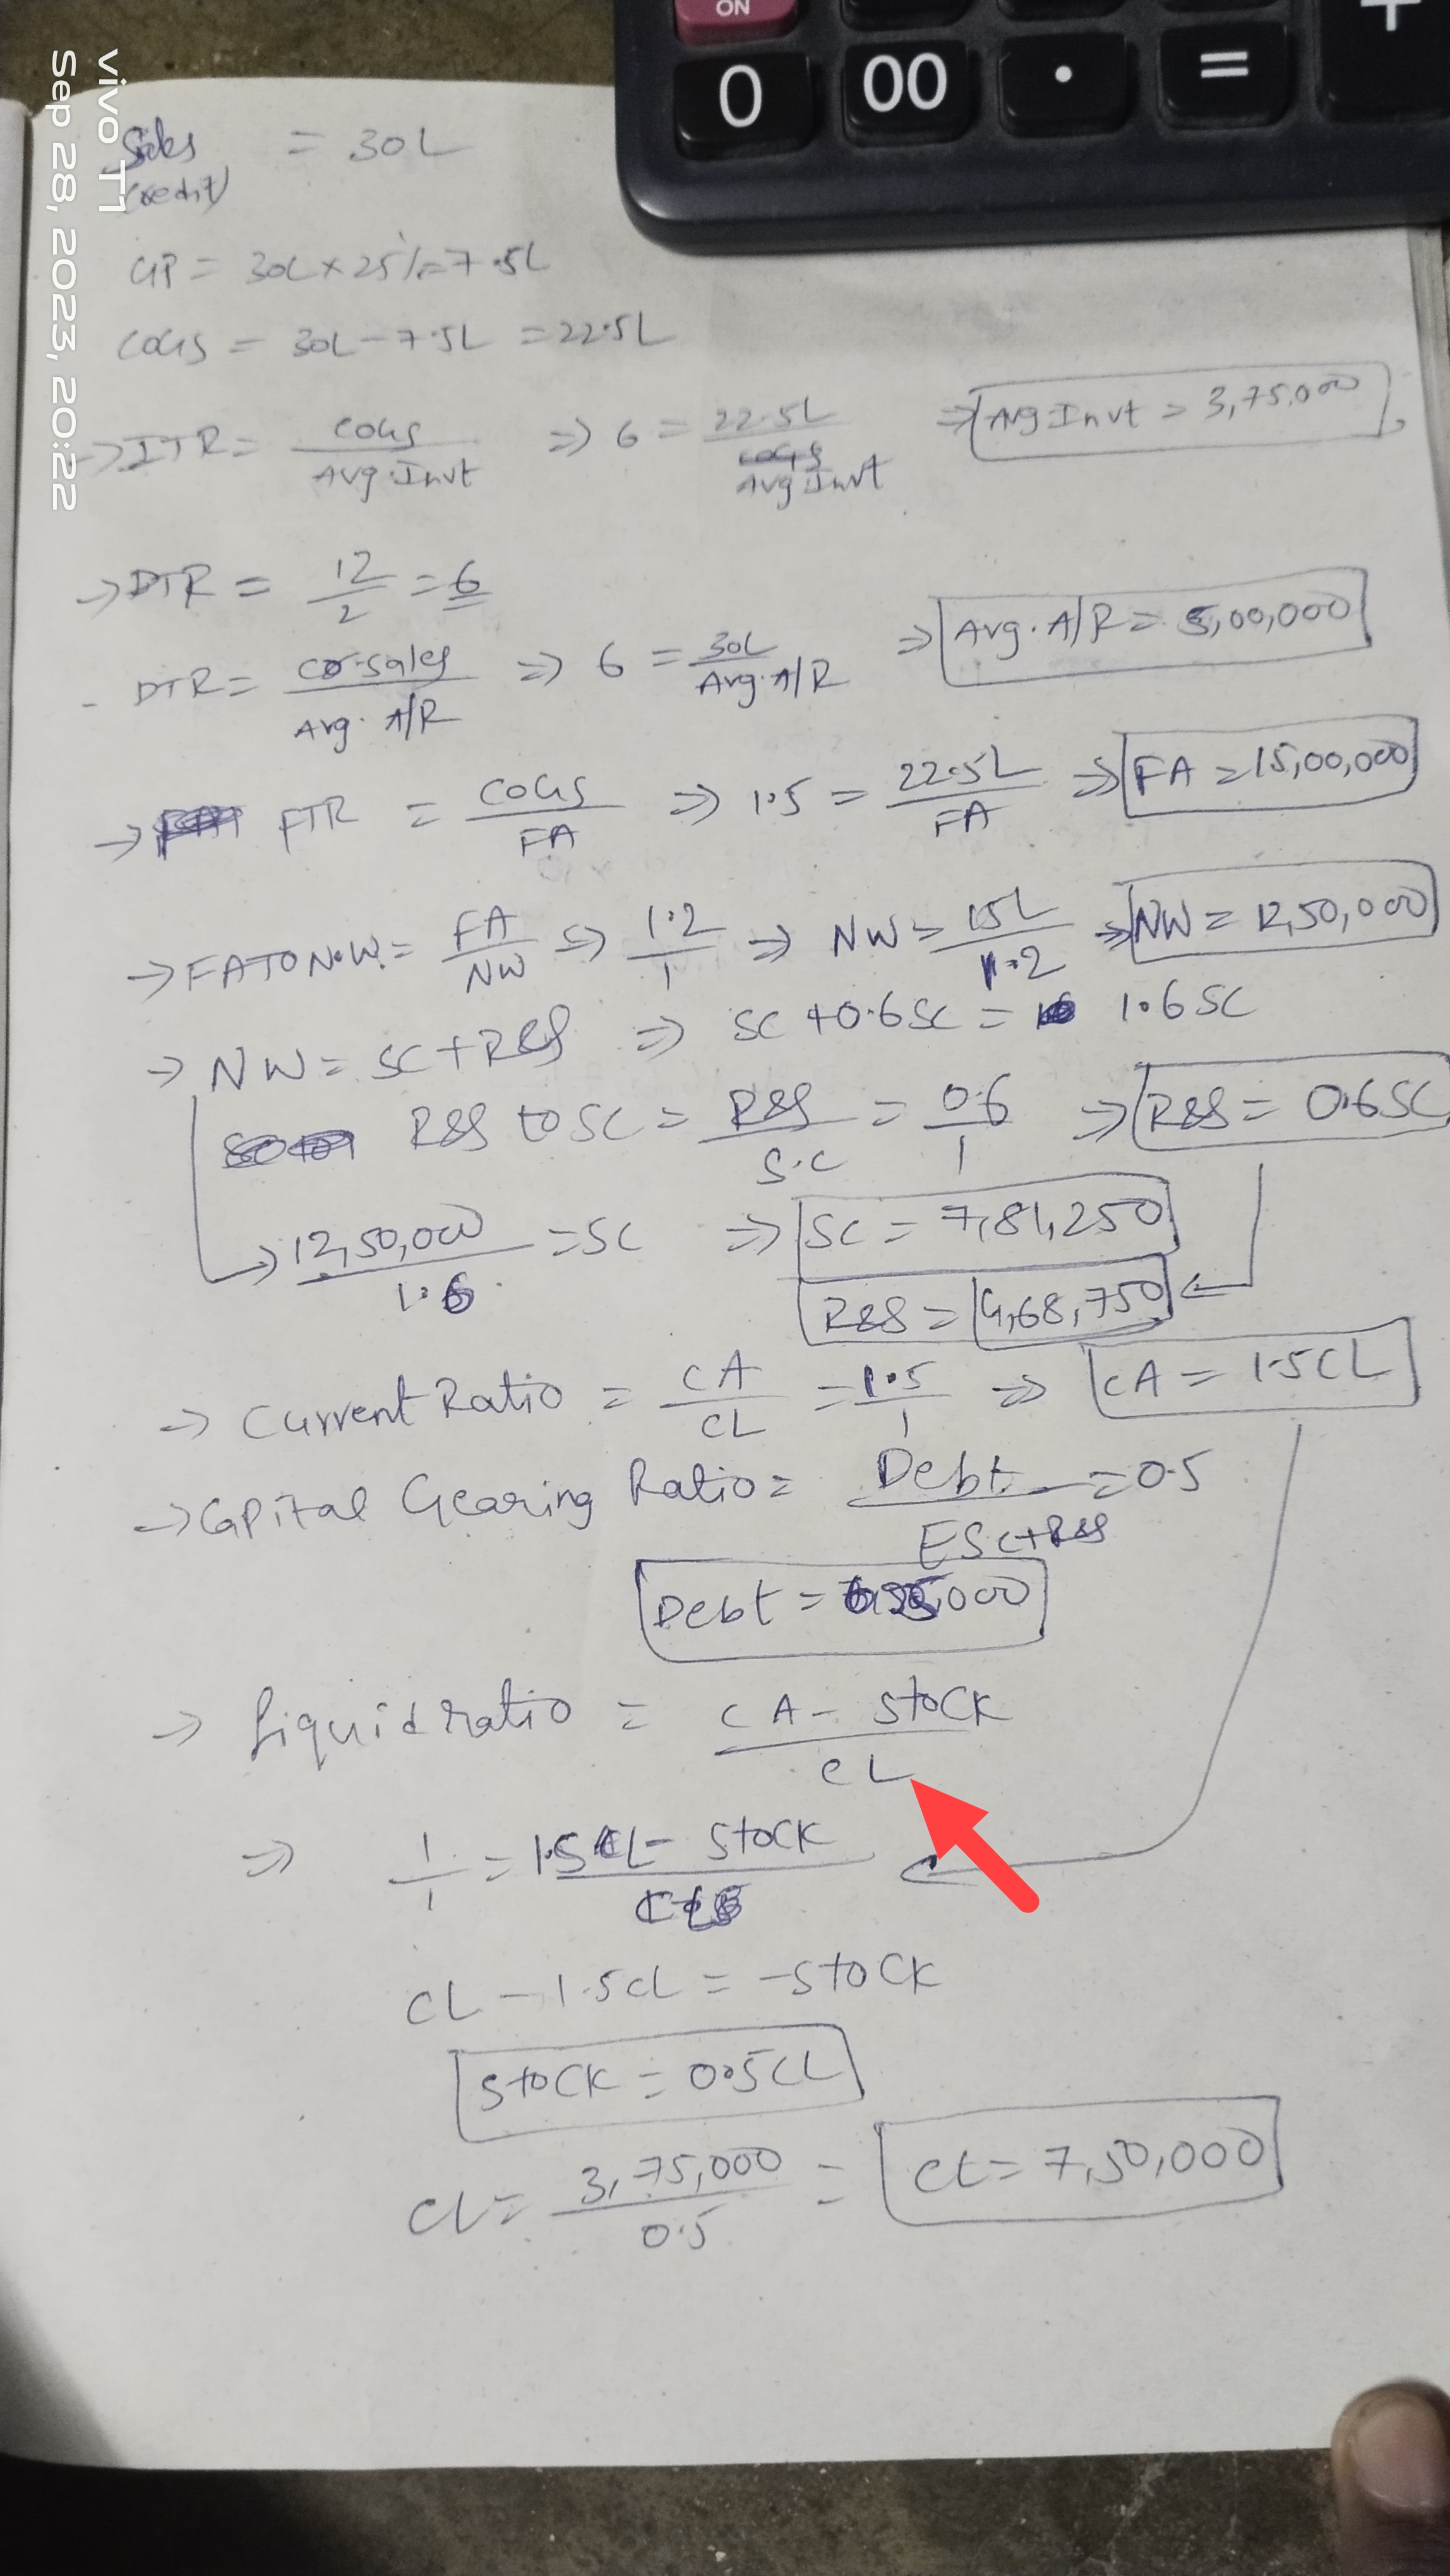 ON
0 00 . = +
vivo T1
Sep 28, 2023, 20:22
Sales = 30L
(credit)
GP = 30L × 25% = 7.5L
COGS = 30L - 7.5L = 22.5L
→ ITR = COGS / Avg.Invt ⇒ 6 = 22.5L / Avg Invt ⇒ Avg Invt = 3,75,000
→ DTR = 12/2 = 6
- DTR = Cr.sales / Avg. A/R ⇒ 6 = 30L / Avg. A/R ⇒ Avg. A/R = 5,00,000
→ FTR = COGS / FA ⇒ 1.5 = 22.5L / FA ⇒ FA = 15,00,000
→ FA TO N.W. = FA / NW ⇒ 1.2 / 1 ⇒ NW = 15L / 1.2 ⇒ NW = 12,50,000
→ NW = SC + R&S ⇒ SC + 0.6SC = 1.6 SC
R&S to SC = R&S / S.C = 0.6 / 1 ⇒ R&S = 0.6SC
→ 12,50,000 / 1.6 = SC ⇒ SC = 7,81,250
R&S = 4,68,750
→ Current Ratio = CA / CL = 1.5 / 1 ⇒ CA = 1.5CL
→ Capital Gearing Ratio = Debt / ESC+R&S = 0.5
Debt = 6,25,000
→ Liquid ratio = CA - Stock / CL
⇒ 1/1 = 1.5CL - Stock / CL
CL - 1.5CL = -Stock
Stock = 0.5CL
CL = 3,75,000 / 0.5 = CL = 7,50,000